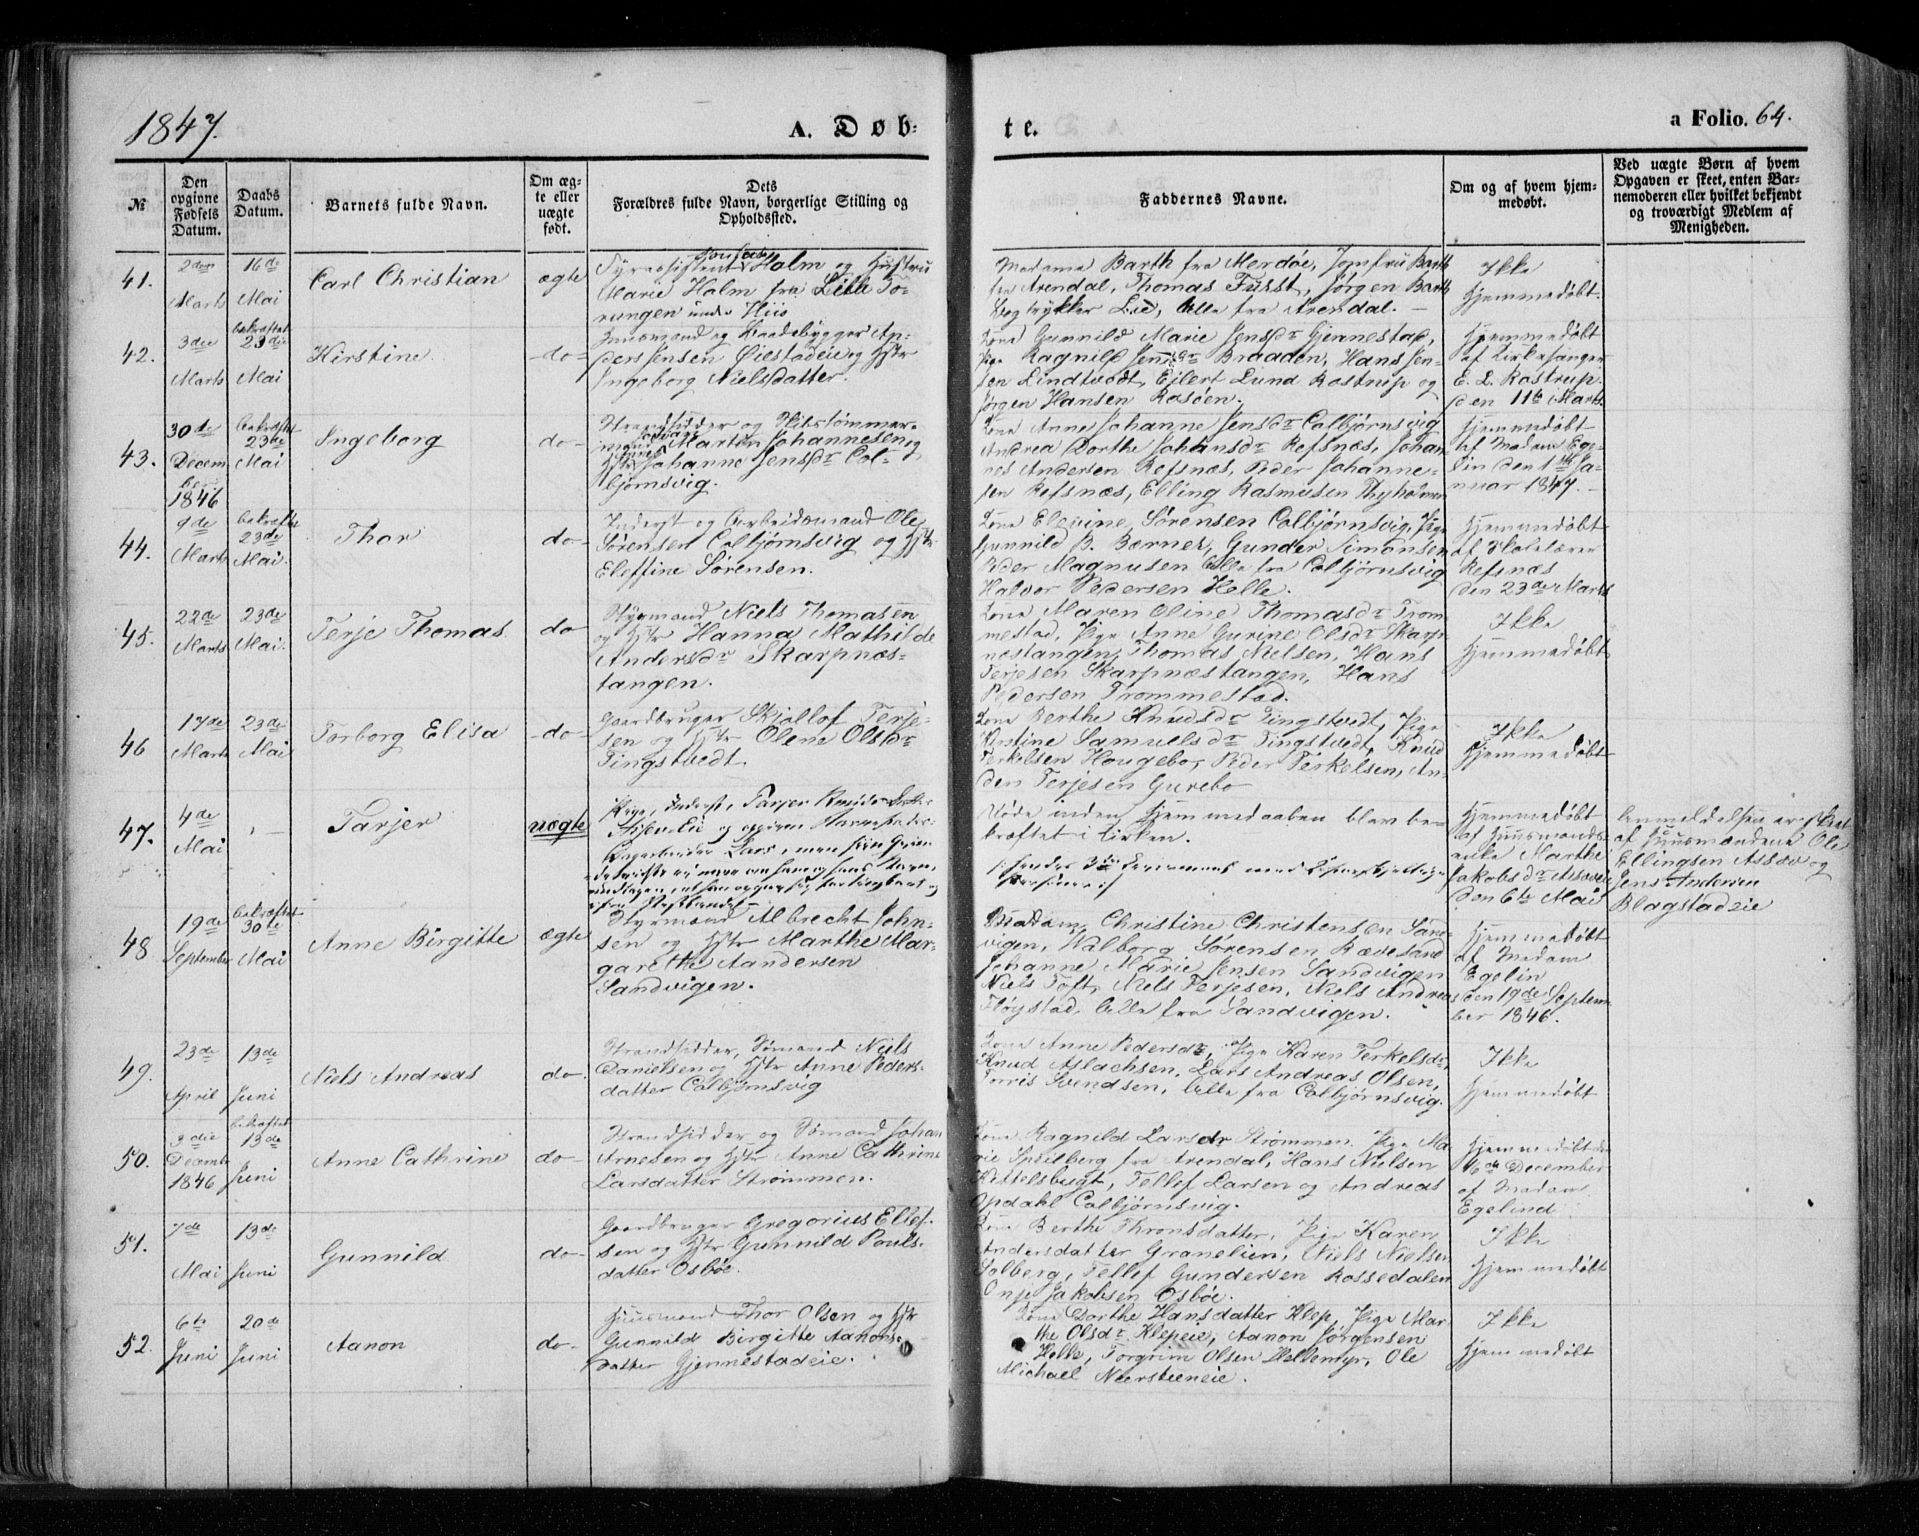 1847.
A. Døb-
te.
a Folio. 64.
№
Den opgivne Fødsels Datum.
Daabs Datum.
Barnets fulde Navn.
Om ægte eller uægte født.
Dets
Forældres fulde Navn, borgerlige Stilling og
Opholdssted.
Faddernes Navne.
Om og af hvem hjemmedøbt.
Ved uægte Børn af hvem
Opgaven er skeet, enten Barnemoderen eller hvilket bekjendt
og troværdigt Medlem af
Menigheden.
41.
Marts
16de
Mai
Carl Christian
ægte
Holm og Hustru
Marie Holm fra Lille To-
rungen under Hiis
Madame Barth fra Merdøe, Jomfru Barth
fra Arendal, Thomas Fürst, Jørgen Barth
Bogtrykker Lie, Alle fra Arendal.
Ikke
Hjemmedøbt.
42.
3die
Marts
bekræftet
23die
Mai
Kirstine
do
Huusmand og Baadebygger An-
ders Jensen Øiestadeie og Hstr
Ingeborg Nielsdatter.
Kone Gunnild Marie Jensdr Gjennestad,
Pige Ragnild Braaden, Hans Jen-
sen Lindtvedt, Ejlert Lund Rostrup og
Jørgen Hansen Rosøen.
Hjemmedøbt
af Kirkesanger
E. L. Rostrup
den 11te Marts
43.
30de
Decem
ber
1846
bekræftet
23de
Mai
Ingeborg
do
Strandsidder og Skibstømmer-
mand Morten Johannesen og
Hstr Johanne Jensdr Col-
bjørnsvig.
Kone Anne Johanne Jensdr Colbjørnsvig
Andrea Dorthe Johansdr Refsnæs, Johan-
nes Andersen Refsnæs, Peder Johanne-
sen Refsnæs, Elling Rasmusen Thyholmen
Hjemmedøbt
af Madam Ege-
lin den 1ste Ja-
nuar 1847.
44.
9de
Marts
bekræftet
23de
Mai.
Thor
do
Inderst og Arbeidsmand Ole
Sørensen Colbjørnsvig og Hstr
Eleftine Sørensen.
Kone Elevine Sørensen Colbjørnsvig, Pige
Gunnild B. Berner, Gunder Simonsen
Peder Magnusen Alle fra Colbjørnsvig
Halvor Pedersen Helle.
Hjemmedøbt
af Skolelærer
Refsnæs
den 23de Marts
45.
22de
Marts
23de
Mai.
Terje Thomas
do
Styrmand Niels Thomasen
og Hstr Hanna Mathilde
Andersdr Skarpnæs-
tangen.
Kone Maren Oline Thomasdr Trom-
mestad, Pige Anne Gurine Olsdr Skarp-
næstangen, Thomas Nielsen, Hans
Terjesen Skarpnæstangen, Hans
Pedersen Trommestad.
Ikke
Hjemmedøbt
46
17de
Marts
23de
Mai
Torborg Elisa
do
Gaardbruger Skjallof Terje-
sen og Hstr Olene Olsdr
Tingstvedt.
Kone Berthe Knudsdr Tingstvedt, Pige
Kirstine Samuelsdr Tingstvedt, Knud
Terkelsen Hougebo, Peder Terkelsen, An-
Terjesen Gurebo
Ikke
Hjemmedøbt
47.
4de
Mai
Tarjer
uægte
Pige, Inderst, Tarjer
Lars, men
Døde inden Hjemmedaaben blev be-
kræftet i Kirken.
Hjemmedøbt
af Huusmands-
enke Marthe
Jakobsdr Assævi
den 6te Mai
Anmeldelsen er skeet
af Huusmændene Ole
Ellingsen Assæv og
Jens Andersen
Blagstadeie
48
19de
September
bekræftet
30te
Mai
Anne Birgitte
ægte
Styrmand Albrecht John-
sen og Hstr Marthe Mar-
garethe Aandersen
Sandvigen.
Madam Christine Christensen Sand-
vigen, Walborg Sørensen Rævesand
Johanne Marie Jensen Sandvigen
Niels Toft, Niels Terjesen, Niels Andreas
Fløystad, Alle fra Sandvigen.
Hjemmedøbt
af Madam
Egelin
den 19de Septem-
ber 1846.
49.
23de
April
13de
Juni
Niels Andreas
do.
Strandsidder, Sømand Niels
Danielsen og Hstr Anne Peders-
datter Colbjørnsvig
Kone Anne Pedersdr, Pige Karen Terkelsdr,
Knud Aslachsen, Lars Andreas Olsen,
Torris Svendsen, Alle fra Colbjørnsvig.
Ikke
Hjemmedøbt
50.
3die
Decembr
1846
bekræftet
13de
Juni
Anne Cathrine
do
Strandsidder og Sømand Johan
Arnesen og Hstr Anne Cathrine
Larsdatter Strømmen.
Kone Ragnild Larsdr Strømmen. Pige Ma-
rie Speilberg fra Arendal, Hans Nielsen
Kittelsbugt, Tellef Larsen og Andreas
Opdahl Colbjørnsvig.
Hjemmedøbt den
6de December
af Madam
Egelind
51.
7de
Mai
13de
Juni
Gunnild
do
Gaardbruger Gregorius Ellef-
sen og Hstr Gunnild Pouls-
datter Osbøe.
Kone Berthe Thronsdatter, Pige Karen
Andersdatter Granelien, Niels Nielsen
Solberg, Tellef Gundersen Rossedalen
Onje Jakobsen Osbøe.
Ikke
Hjemmedøbt
52.
6te
Juni
20de
Juni
Aanon
do
Huusmand Thor Olsen og Hstr
Gunnild Birgitte Aanons-
datter Gjennestadeie.
Kone Dorthe Hansdatter Klep, Pige Mar-
the Olsdr Klepeie, Aanon Jørgensen
Helle, Torgrim Olsen Hellemyr, Ole
Michael Næristieneie.
Ikke
Hjemmedøbt